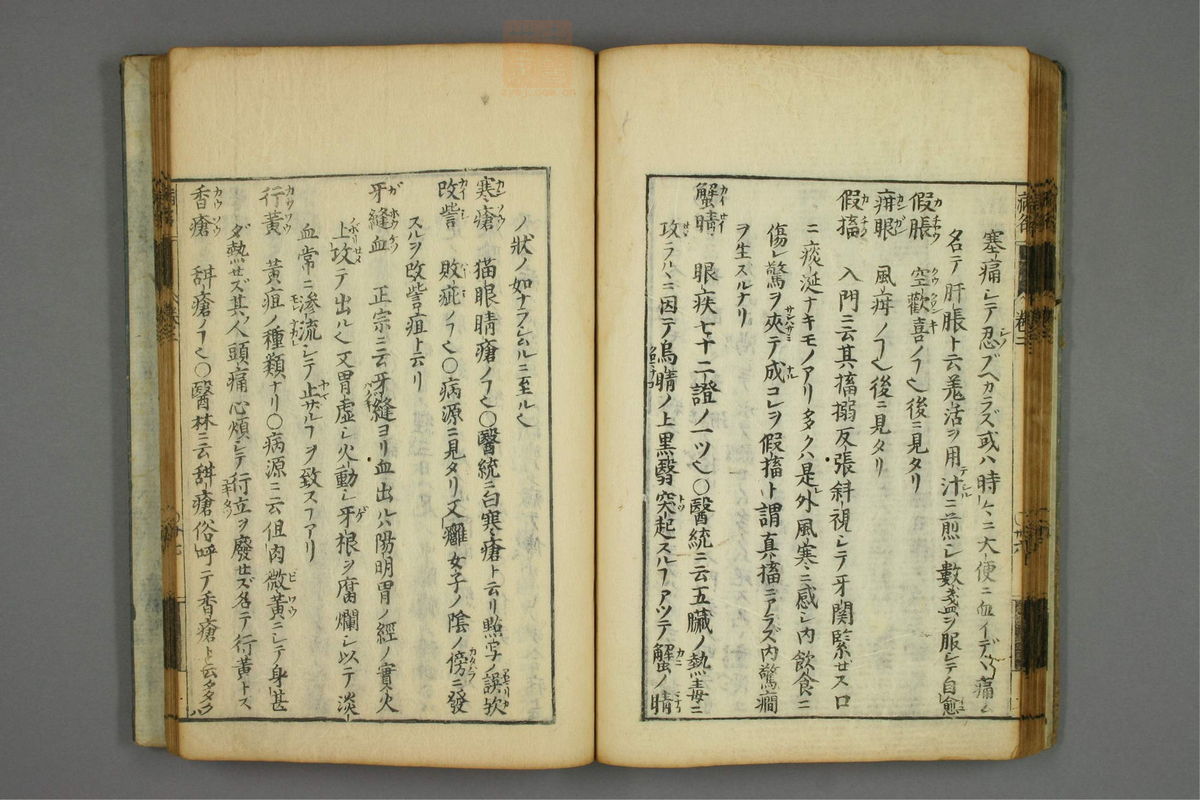 塞痛シテ忍ズヘカラズ或ハ時々ニ大便ニ血イデ痛ム
名テ肝脹ト云羗活ヲ用汁ニ煎シ數盞ヲ服シテ自愈
假脹 空歡喜ノ後ニ見タリ
疳眼 風疳ノ後ニ見タリ
假搐 入門ニ云其搐搦反張斜視シテ牙關緊セス口
ニ痰涎ナキモノアリ多クハ是外風寒ニ感シ内飲食ニ
傷レ驚ヲ夾テ成コレヲ假搐ト謂真搐ニアラズ内驚癇
ヲ生スルナリ
蟹睛 眼疾七十二證ノ一ツ〇醫統ニ云五臟ノ熱毒ニ
攻ラルヽニ因テ烏睛ノ上黒翳突起スルヿアツテ蟹ノ睛
ノ狀ノ如ナラシムルニ至ル
寒瘡 猫眼睛瘡ノヿ〇醫統ニ曰寒瘡ト云リ照写ノ誤欤
攺訾 敗疵ノヿ〇病源ニ見タリ又癰女子ノ陰ノ傍ニ發
スルヲ攺訾疽ト云リ
牙縫血 正宗ニ云牙縫ヨリ血出ルハ陽明胃ノ經ノ實火
上攻テ出ル又胃虚シ火動シ牙根ヲ腐爛シ以テ淡
血常ニ滲流シテ止サルヿヲ致スヿアリ
行黃 黃疸ノ種類ナリ〇病源ニ云但肉微黃ニシテ身甚
ダ熱セズ其人頭痛心煩シテ行立ヲ廢セズ名テ行黃トス
香瘡 甜瘡ノヿ〇醫林ニ云甜瘡俗呼テ香瘡ト云